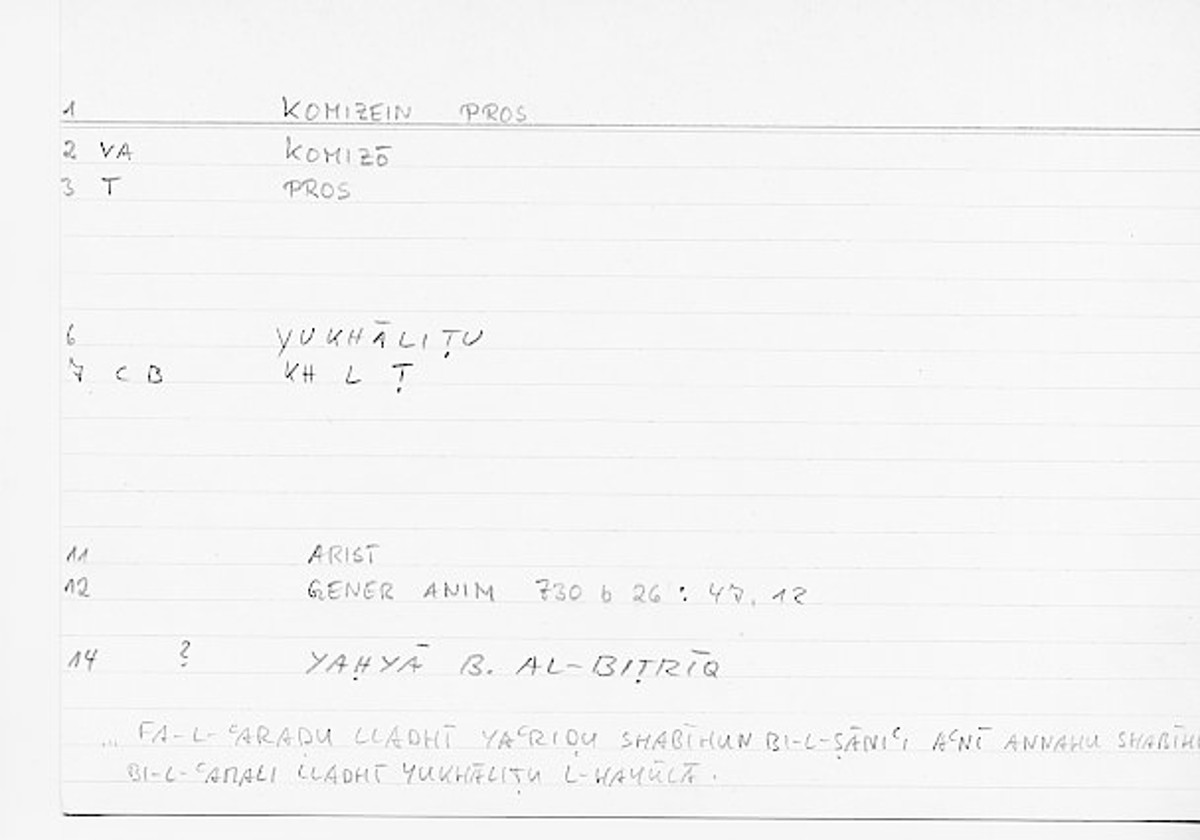 1 KOMIZEIN PROS
2 VA KOMIZŌ
3 T PROS
6 YUKHĀLIṬU
7 C B KH L Ṭ
11 ARIST
12 GENER ANIM 730 b 26 : 47, 12
14 ? YAḤYĀ B. AL-BIṬRĪQ
... FA-L-ʿARADU LLADHĪ YAʿRIḌU SHABĪHUN BI-L-ṢĀNIʿI AʿNĪ ANNAHU SHABĪHU
BI-L-ʿAMALI LLADHĪ YUKHĀLIṬU L-HAYŪLĀ.